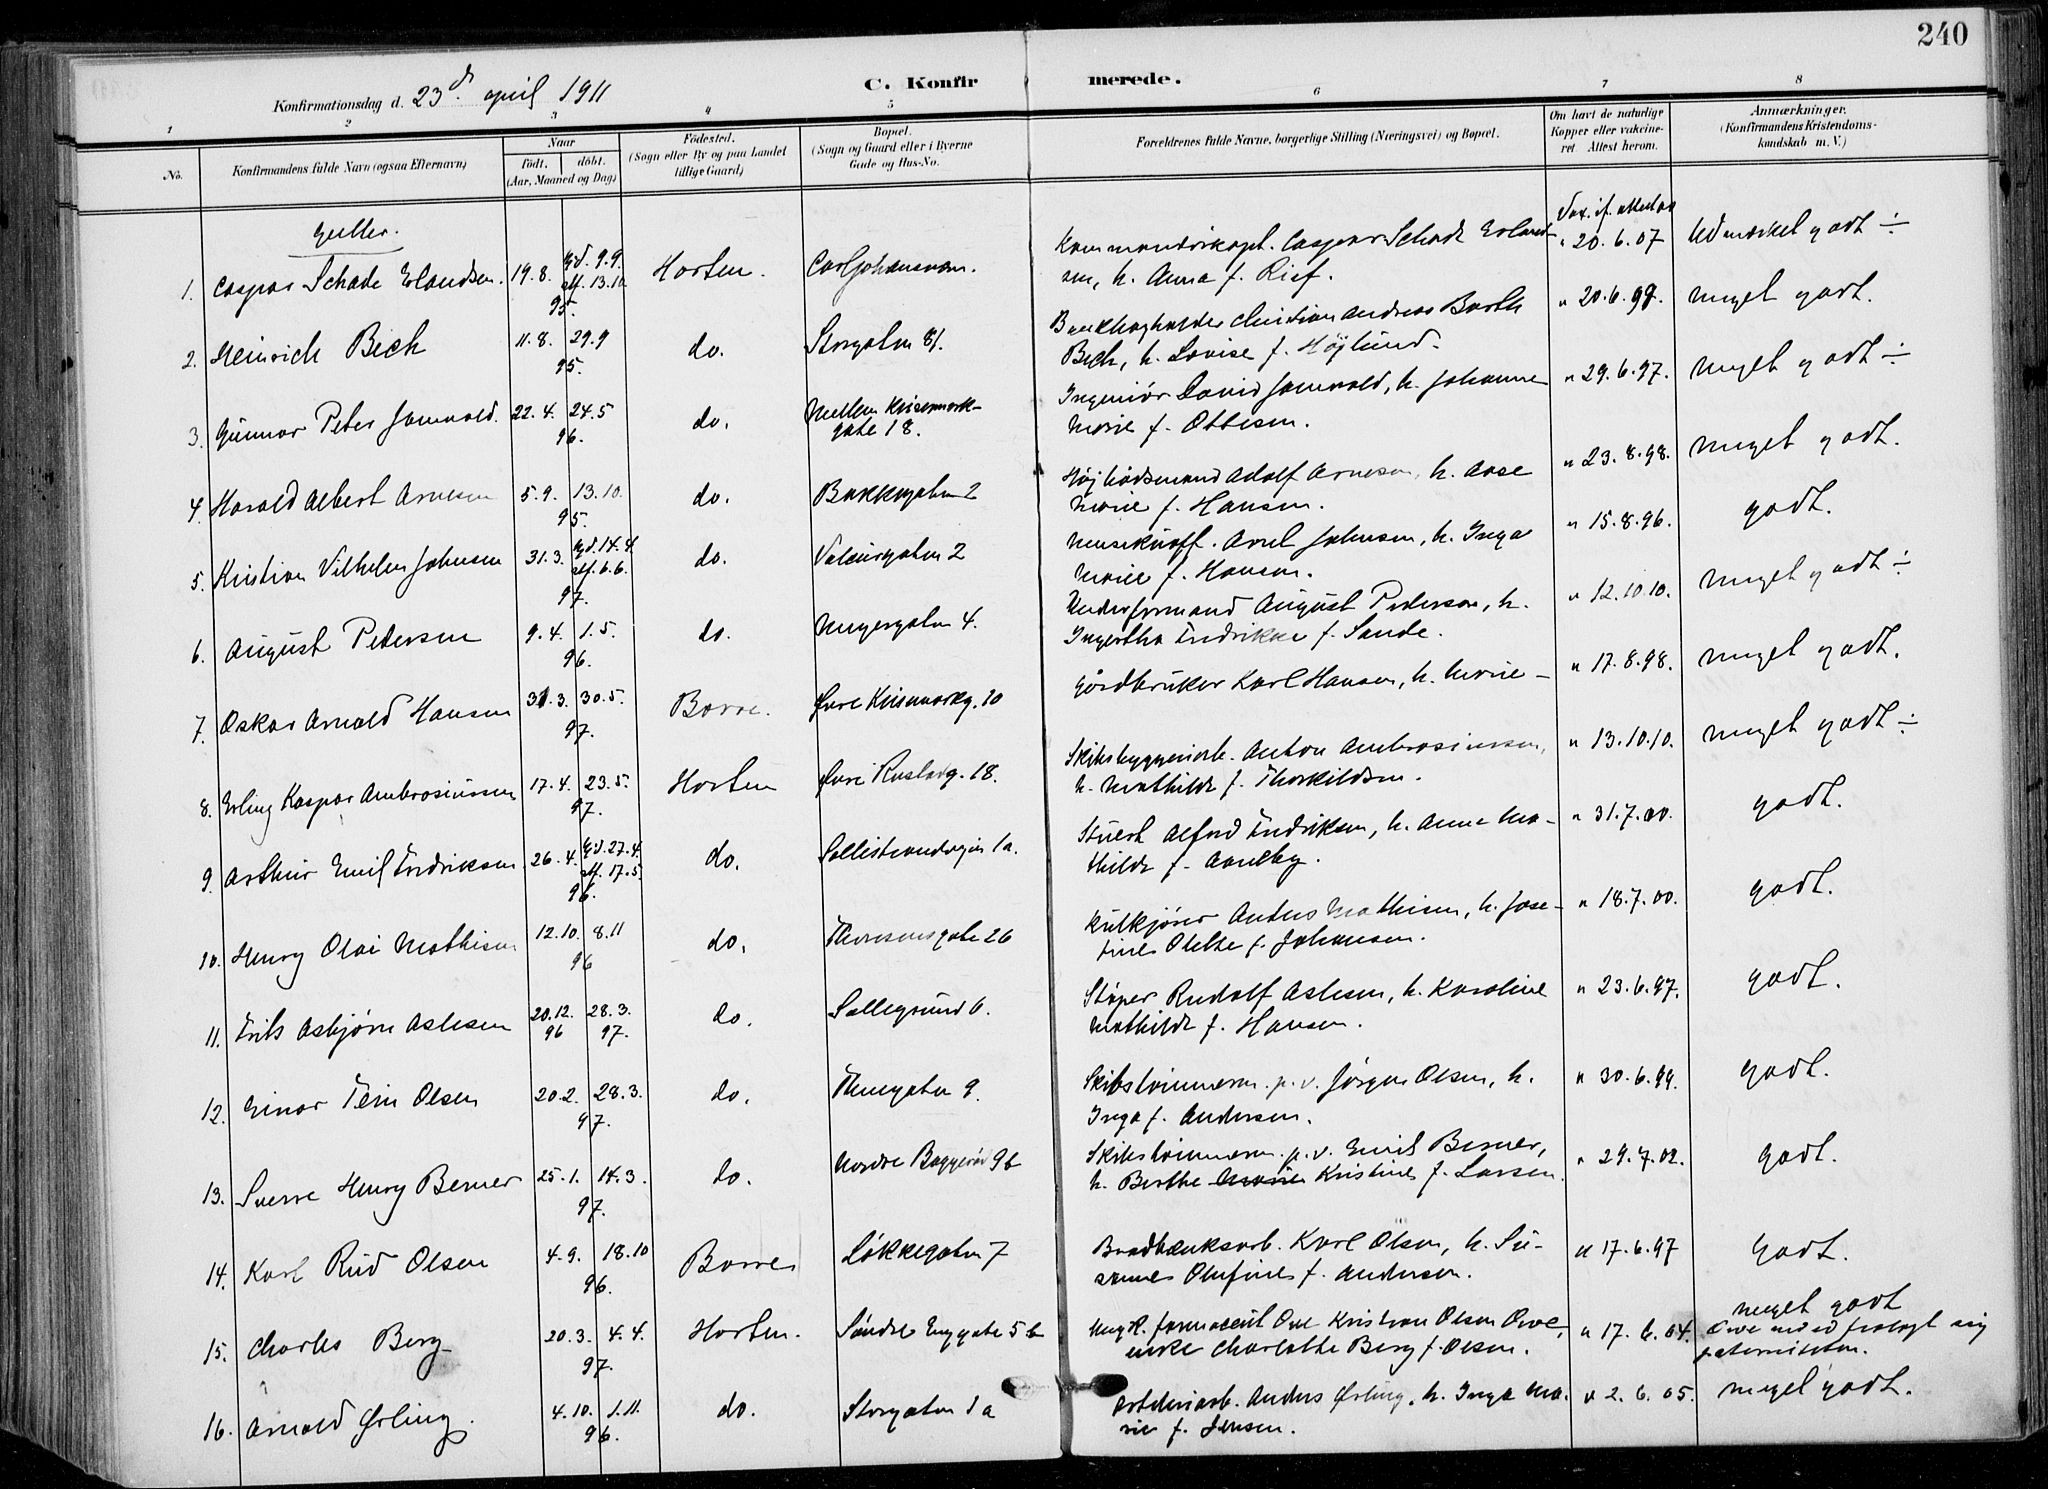 240
Konfirmationsdag d. 23d. april 1911
C. Konfirmerede.
1 2 3 4 5 6 7 8
No.
Konfirmandens fulde Navn (ogsaa Efternavn)
Naar
födt. döbt.
(Aar, Maaned og Dag)
Födested.
(Sogn eller By og paa Landet
tillige Gaard)
Bopæl.
(Sogn og Gaard eller i Byerne
Gade og Hus-No.
Forældrenes fulde Navne, borgerlige Stilling (Næringsvei) og Bopæl.
Om havt de naturlige
Kopper eller vakcine-
ret. Attest herom.
Anmærkninger.
(Konfirmandens Kristendoms-
kundskab m. V.)
Gutter.
Vax. if. attest av
1. Caspar Schade Erlandsen. 19.8. Hjd. 9.9. stf. 13.10. 95. Horten. Carljohansvern. Kommandørkapt. Caspar Schade Erland- " 20.6.07 Udmærket godt ÷
sen, h. Anna f. Rief.
2. Heinrich Bech 11.8. 29.9 95. do. Storgaten 81. Bankbogholder Christian Andreas Barth " 20.6.99. meget godt.
Bech, h. Lovise f. Höjlund.
3. Gunnar Peter Jarnvold. 22.4. 24.5 96. do. Mellem Keisemark-
gate 18. Ingeniör David Jarnvold, h. Johanne " 29.6.97. meget godt ÷
Marie f. Ottesen.
4. Harald Albert Arnesen 5.9. 13.10. 95. do. Bakkegaten 2 Höjbådsmand Adolf Arnesen, h. Aase " 23.8.98. meget godt.
Marie f. Hansen.
5. Kristian Vilhelm Johnsen 31.3. Hjd. 14.4. stf. 6.6. 97. do. Vaterigaten 2 Johnsen, h. Inga " 15.8.96. godt.
Marie f. Hansen.
6. August Petersen 9.4. 1.5. 96. do. Meyergaten 4. Underformand August Pedersen, h. " 12.10.10. meget godt ÷
Fredrikke f. Sande.
7. Oskar Arnold Hansen 31.3. 30.5. 97. Borre. Øvre Keisemarkg. 10 Gårdbruker Karl Hansen, h. Marie – " 17.8.98. meget godt.
8. Erling Kaspar Ambrosiussen 17.4. 23.5. 97. Horten Øvre Rustadg. 18. Skibsbyggeriarb. Anton Ambrosiussen, " 13.10.10. meget godt ÷
h. Mathilde f. Thorkildsen.
9. Arthur Emil Fredriksen 26.4. Hjd. 27.4. stf. 17.5. 96. do. Sollistrandveien 1a. Stuert Alfred Fredriksen, h. Anna Ma- " 31.7.00. godt.
thilde f. Aaneby.
10. Henry Olai Mathisen 12.10. 8.11 96 do. Thoresensgate 26 Kulkjörer Anders Mathisen, h. Jose- " 18.7.00. godt.
fine Olette f. Johansen.
11. Frits Asbjørn Aslesen 20.12. 96 28.3. 97. do. Sollegrund 6. Støper Rudolf Aslesen, h. Karoline " 23.6.97. godt.
Mathilde f. Hansen.
12. Einar Fein Olsen 20.2. 28.3. 97. do. Thuegaten 9. Skibstømmerm. p.v. Jörgen Olsen, h. " 30.6.99. godt.
Inga f. Andersen.
13. Sverre Henry Berner 25.1. 14.3. 97. do. Nordre Baggerød 9b Skibstømmerm. p.v. Emil Berner, " 29.7.02. godt.
h. Berthe Marie Kristine f. Larsen.
14. Karl Rud Olsen 4.9. 18.10 96. Borre Løkkegaten 7 Bradbænksarb. Karl Olsen, h. Su- " 17.6.97 godt.
sanne Olufine f. Andersen.
15. Charles Berg 20.3. 4.4. 97. Horten. Søndre Enggate 5b Ung. K. farmaceut Ove Kristian Olsen Owe, " 17.6.04. meget godt
enke Charlotte Berg f. Olsen. Owe nedfralagt sig
paterniteten.
16. Arnold Ørling. 4.10. 1.11. 96. do. Storgaten 1a Artilleriarb. Anders Ørling, h. Inga Ma- " 2.6.05. meget godt.
rie f. Jensen.